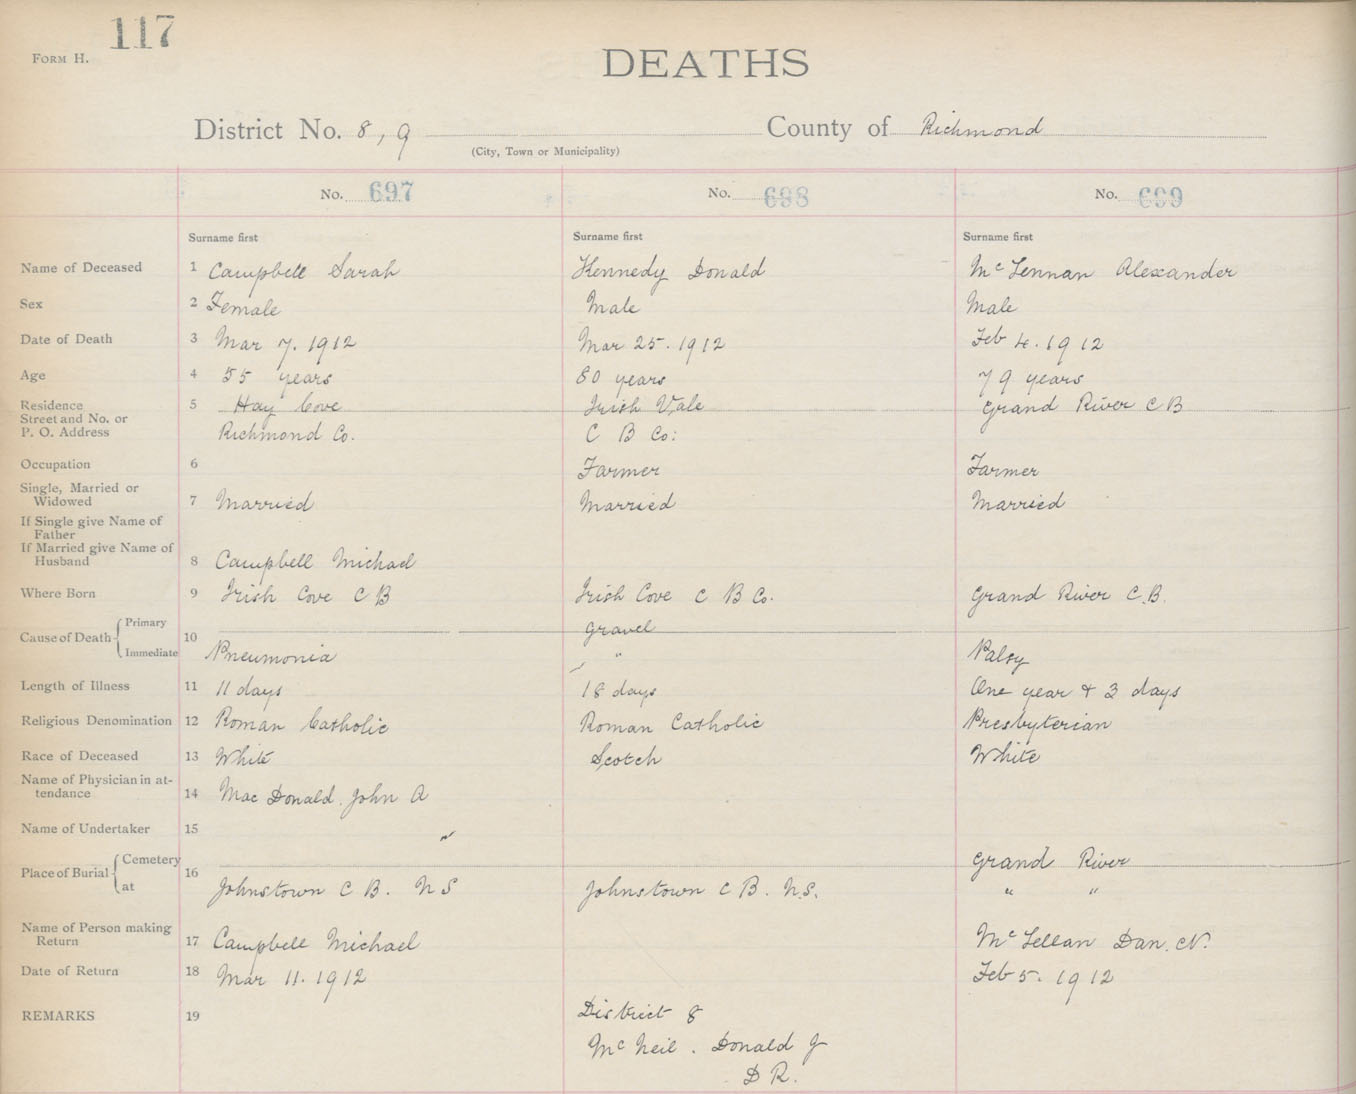 117
FORM H.
DEATHS
District No. 8, 9 County of Richmond
(City, Town or Municipality)
No. 697 No. 698 No. 699
Surname first Surname first Surname first
Name of Deceased 1 Campbell Sarah Kennedy Donald McLennan Alexander
Sex 2 Female Male Male
Date of Death 3 Mar 7. 1912 Mar 25. 1912 Feb 4. 1912
Age 4 55 years 80 years 79 years
Residence 5 Hay Cove Irish Vale Grand River C B
Street and No. or
P. O. Address Richmond Co. C B Co:
Occupation 6 Farmer Farmer
Single, Married or
Widowed 7 Married Married Married
If Single give Name of
Father
If Married give Name of
Husband 8 Campbell Michael
Where Born 9 Irish Cove C B Irish Cove C B Co. Grand River C.B.
Cause of Death 10 Primary Gravel
Immediate Pneumonia " Palsy
Length of Illness 11 11 days 18 days One year & 3 days
Religious Denomination 12 Roman Catholic Roman Catholic Presbyterian
Race of Deceased 13 White Scotch White
Name of Physician in at-
tendance 14 MacDonald. John A
Name of Undertaker 15 "
Place of Burial 16 Cemetery Grand River
at Johnstown C B. N S Johnstown C B. N.S. " "
Name of Person making
Return 17 Campbell Michael McLellan Dan. N.
Date of Return 18 Mar 11. 1912 Feb 5. 1912
REMARKS 19 District 8
McNeil. Donald J
D R.